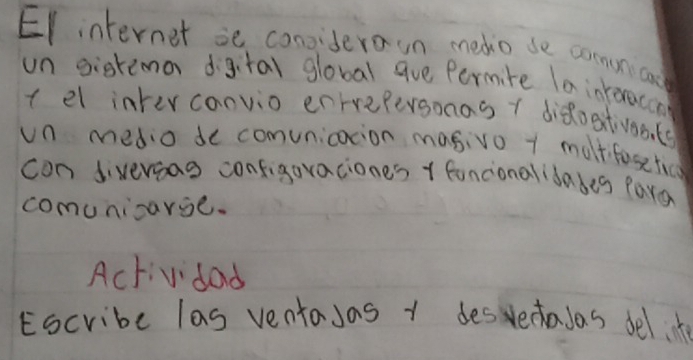 El internet se considera un medio de comunicacio
un sistema digital global que Permite la interaccion
y el inter canvio entrepersonas y dispositivos. Es
un medio de comunicacion masivo y multifasetico
con diversas configuraciones y funcionalidades Para
comunisarse.
Actividad
Escribe las ventajas y desventajas del inte